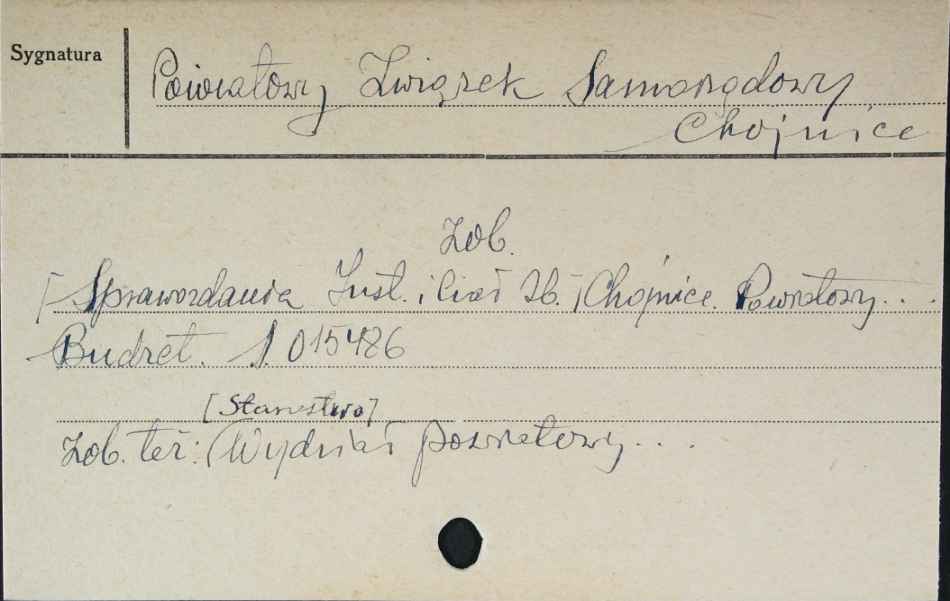 Sygnatura
Powiatowy Związek Samorządowy
Chojnice
Zob.
[Sprawozdania Inst. i Ciał Zb.] Chojnice. Powiatowy...
Budżet. S. 015486
[Starostwo]
Zob. też: Wydział powiatowy...